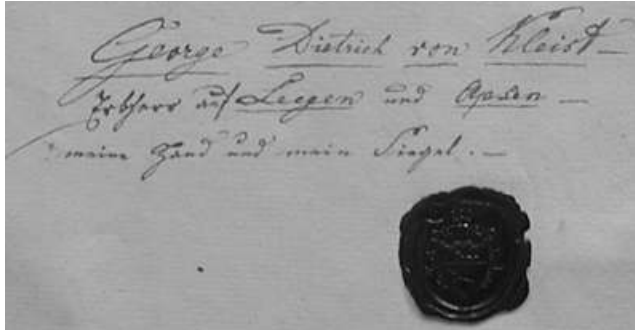 George Dietrich von Kleist —
Erbherr auf Leegen und Apsen —
meine Hand und mein Siegel. —